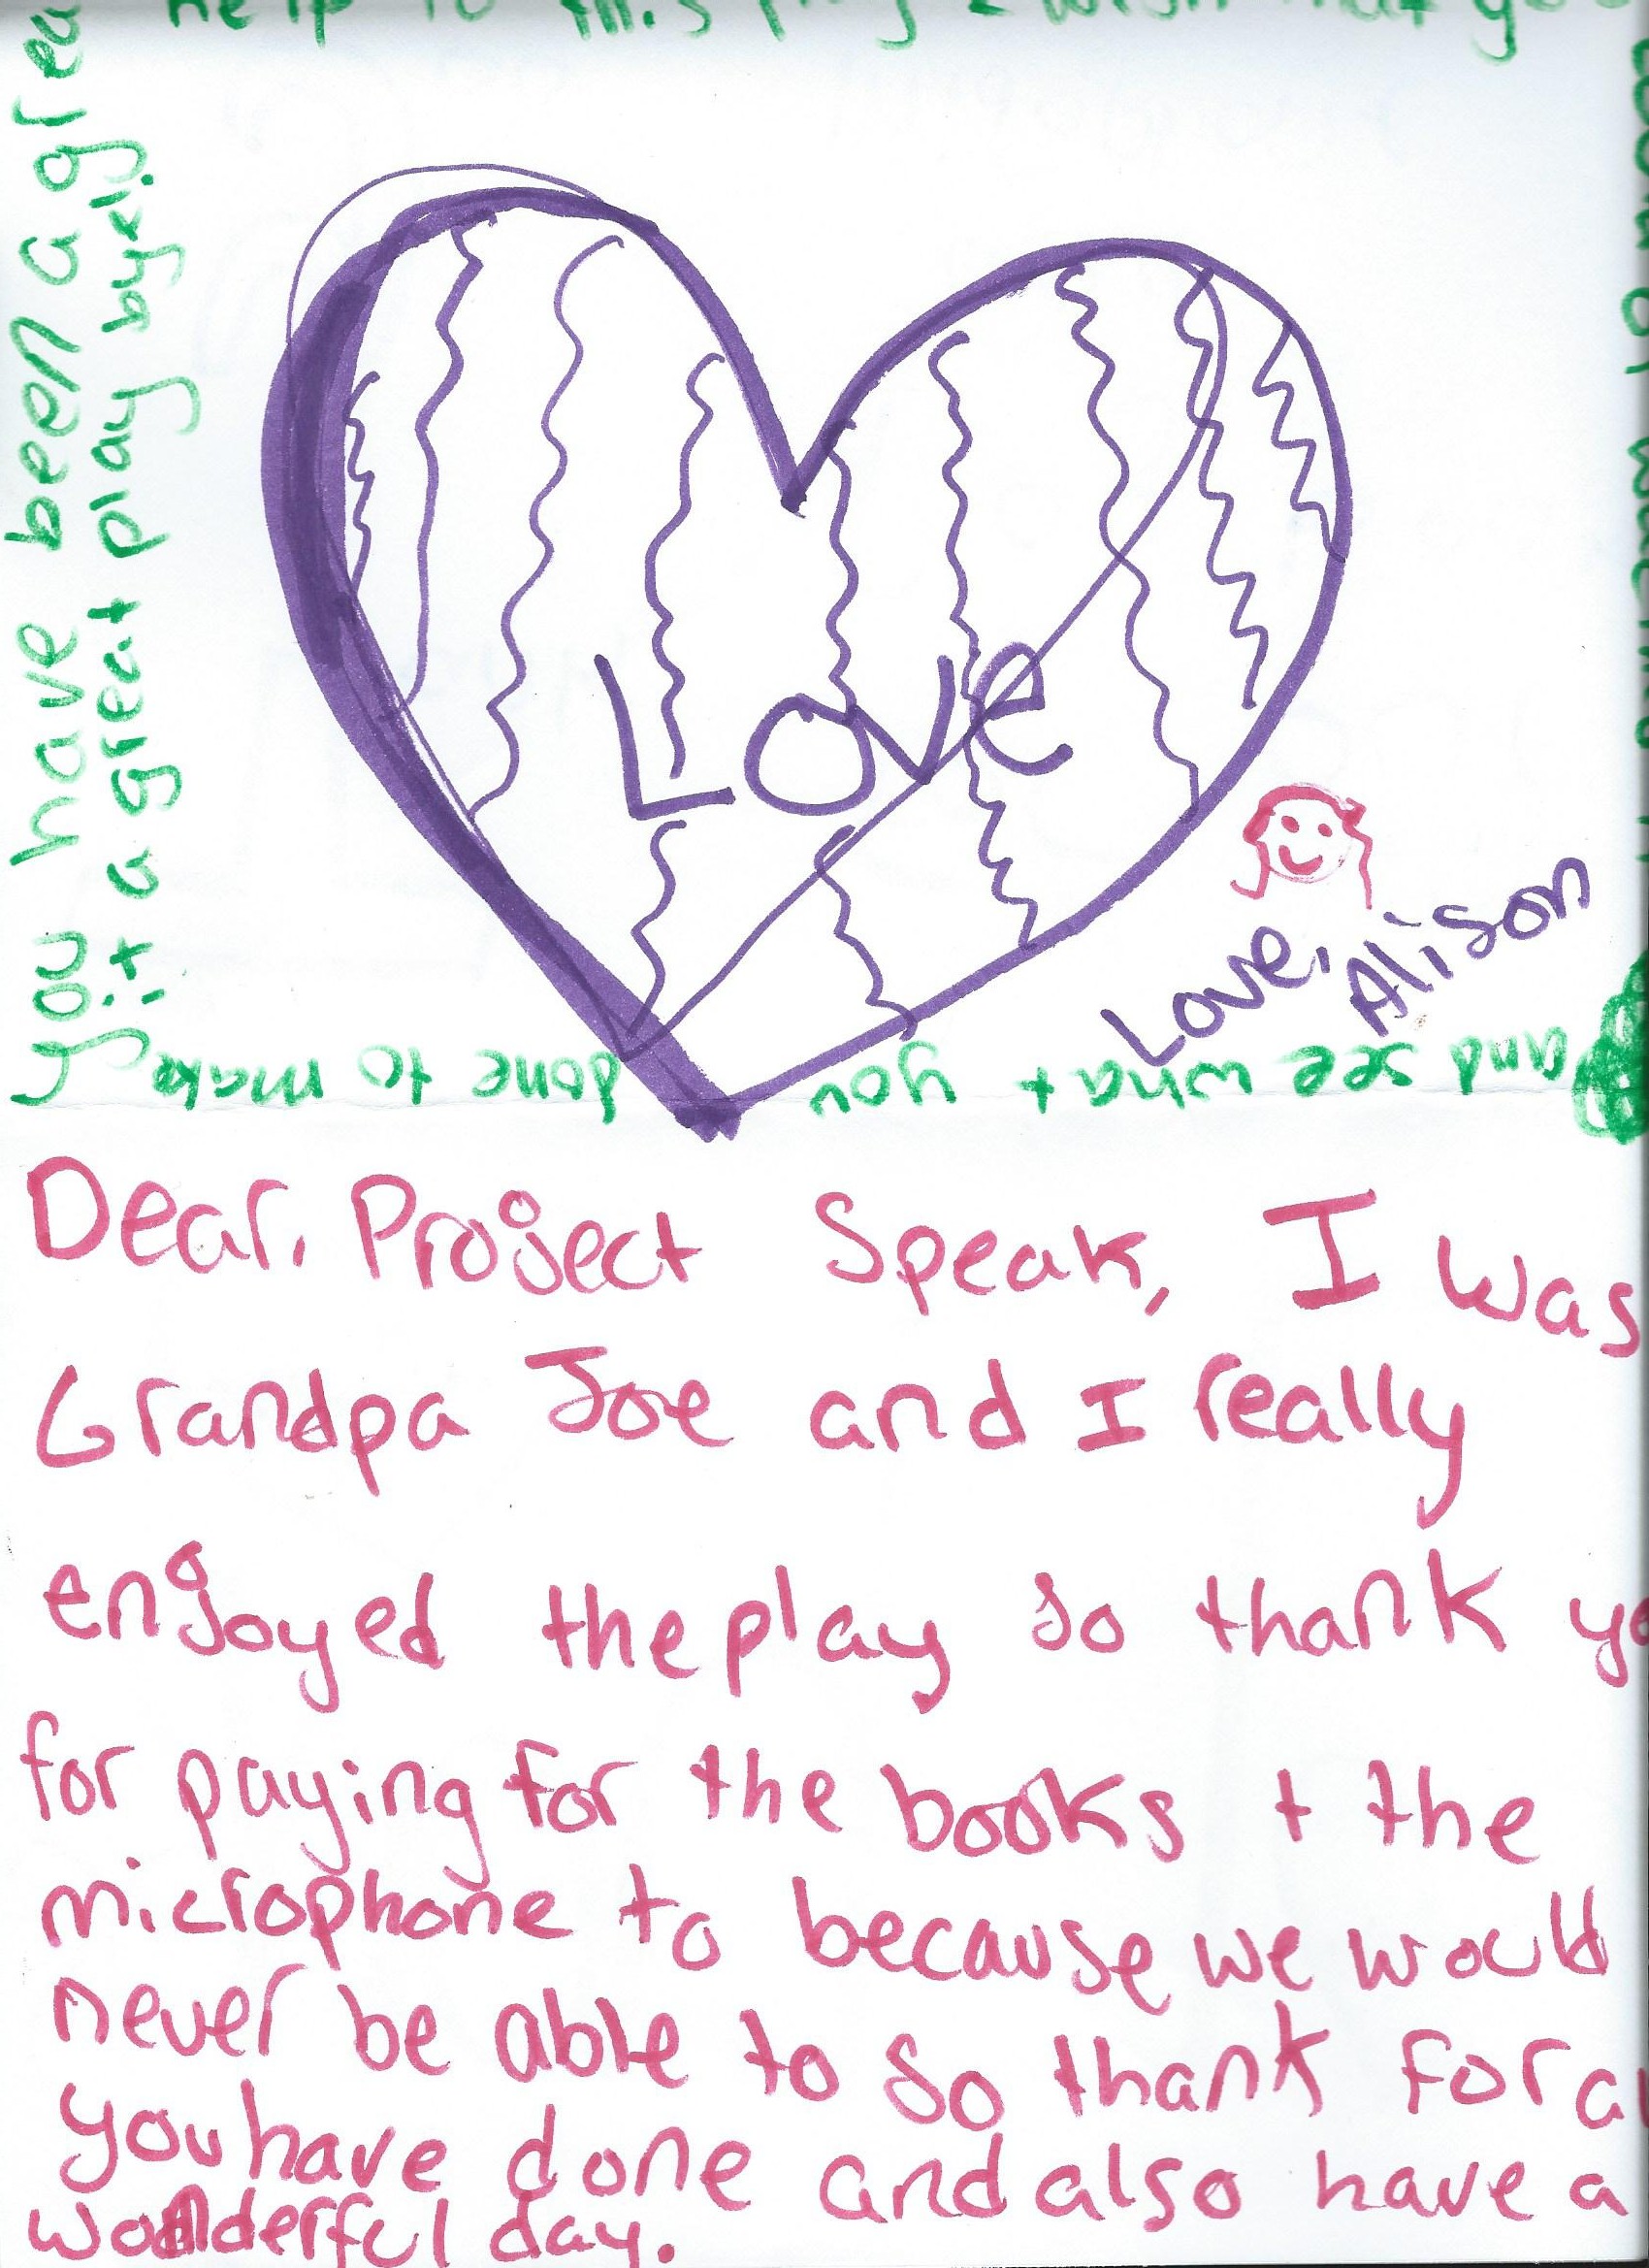 you have been a grea
help to this play I wish that yo
and see what you done to make
it a great play bye!
Love
Love, Alison
Dear. Project Speak, I was
Grandpa Joe and I really
enjoyed the play so thank yo
for paying for the books + the
microphone to because we would
never be able to so thank for a
you have done and also have a
wonderful day.